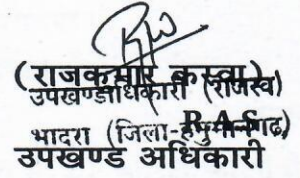 (राजकुमार कस्वा)
उपखण्डाधिकारी (राजस्व)
R.A.S
भादरा (जिला-हनुमानगढ़)
उपखण्ड अधिकारी